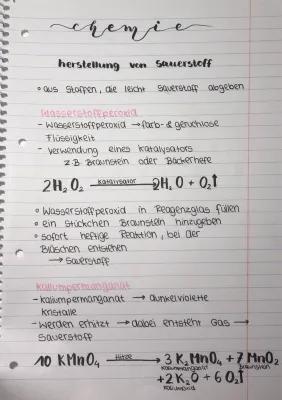 chemie
herstellung von Sauerstoff
° aus Stoffen, die leicht Sauerstoff abgeben
Wasserstoffperoxid
- Wasserstoffperoxid → farb- & geruchlose
Flüssigkeit
- Verwendung eines Katalysators
z.B. Braunstein oder Bäckerhefe
2H₂O₂ Katalysator → 2H₂O + O₂↑
° Wasserstoffperoxid in Reagenzglas füllen
° ein Stückchen Braunstein hinzugeben
° sofort heftige Reaktion, bei der
Bläschen entstehen
→ Sauerstoff
Kaliumpermanganat
- Kaliumpermanganat → dunkelviolette
Kristalle
- werden erhitzt → dabei entsteht Gas →
Sauerstoff
10 KMnO₄ Hitze → 3 K₂MnO₄ + 7 MnO₂
Kaliummanganat Braunstein
+2 K₂O + 6 O₂↑
Kaliumoxid